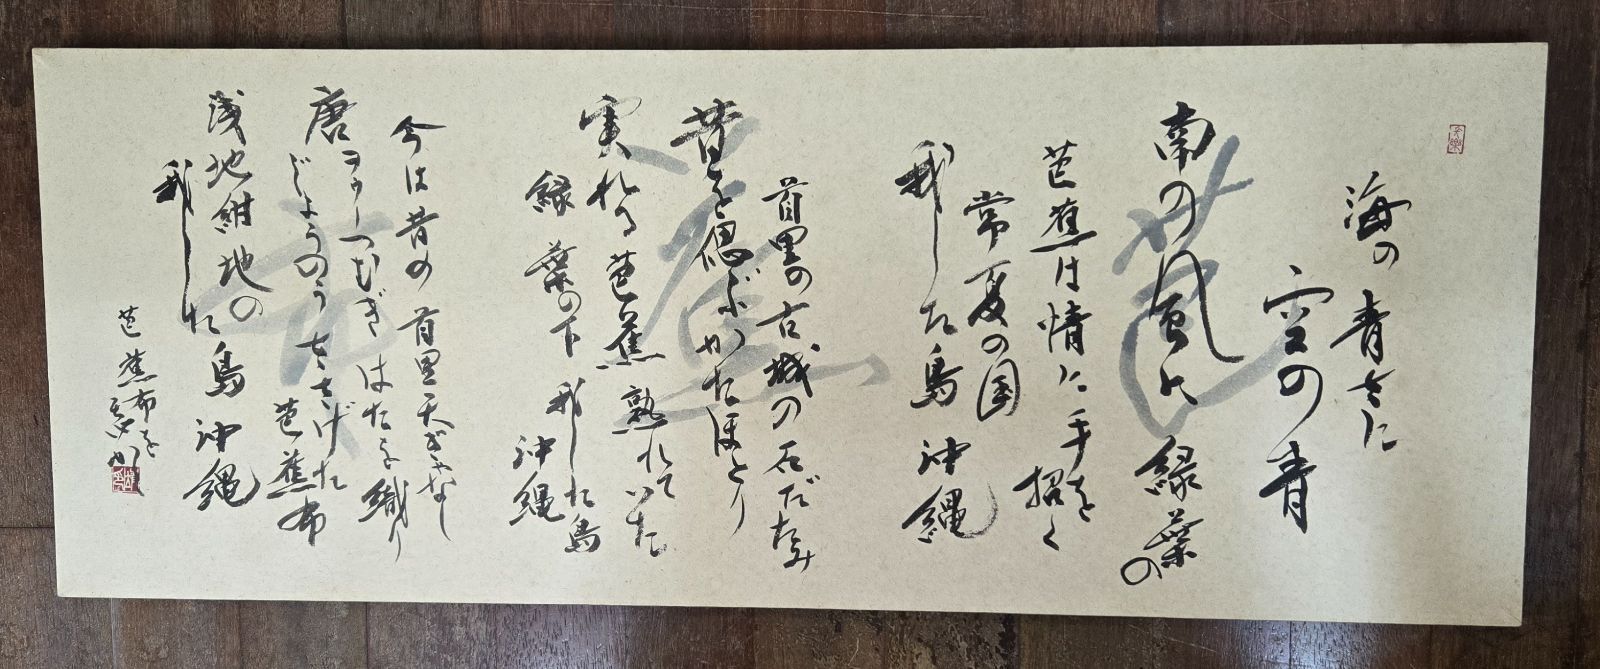 海の青さに
空の青
南の風に 緑葉の
芭蕉は情に手を招く
常夏の国
我した島 沖縄
首里の古城の石だたみ
昔を偲ぶかたほとり
実れる芭蕉 熟れていた
緑葉の下 我した島
沖縄
今は昔の首里天ぎゃなし
唐ヲゥーつむぎ はたを織り
じょうのうささげた
芭蕉布
浅地紺地の
我した島 沖縄
芭蕉布を
芭蕉布